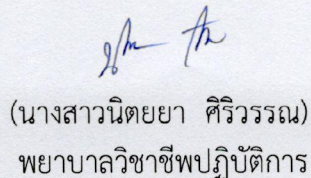 (นางสาวนิตยยา ศิริวรรณ)
พยาบาลวิชาชีพปฏิบัติการ